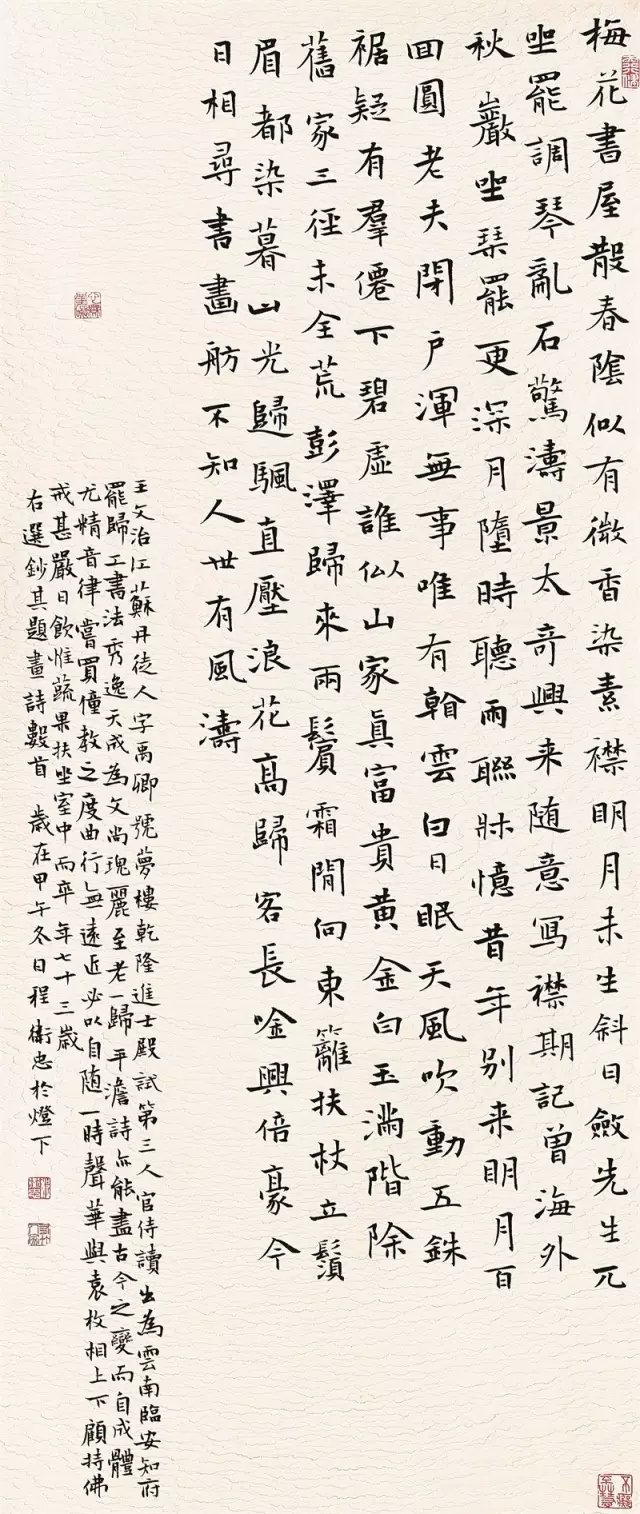 梅花書屋散春陰似有微香染素襟明月未生斜日斂先生兀
坐罷調琴亂石驚濤景太奇興来随意寫襟期記曾海外
秋巖坐琹罷更深月墮時聽雨聯牀憶昔年别来明月百
回圓老夫閉户渾無事唯有翰雲白日眠天風吹動五銖
裾疑有羣僊下碧虛誰似山家真富貴黄金白玉滿階除
舊家三徑未全荒彭澤歸來兩鬢霜閒向東籬扶杖立鬚
眉都染暮山光歸颿直壓浪花高歸客長唫興倍豪今
日相尋書畫舫不知人世有風濤
王文治江蘇丹徒人字禹卿號夢樓乾隆進士殿試第三人官侍讀出為雲南臨安知府
罷歸工書法秀逸天成為文尚瑰麗至老一歸平澹詩亦能盡古今之變而自成體
尤精音律嘗買僮教之度曲行無遠近必以自随一時聲華與袁枚相上下顧持佛
戒甚嚴日飲惟蔬果扶坐室中而卒年七十三歲
右選鈔其題畫詩數首 歲在甲午冬日程衛忠於燈下